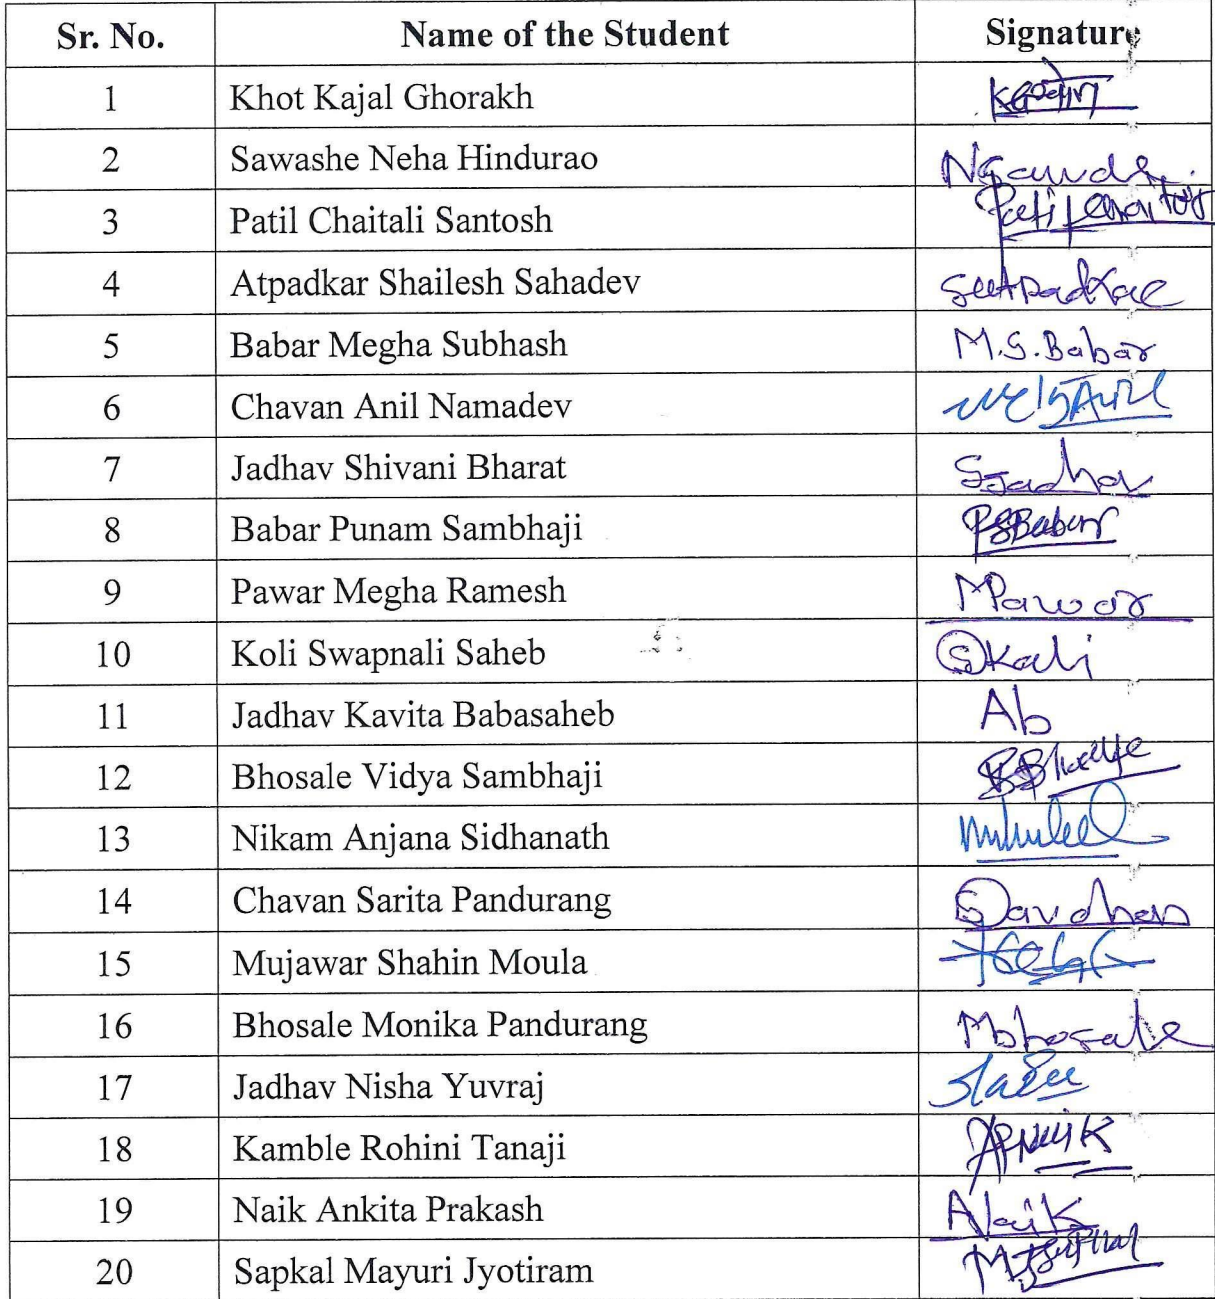 Sr. No. Name of the Student Signature
1 Khot Kajal Ghorakh
2 Sawashe Neha Hindurao
3 Patil Chaitali Santosh
4 Atpadkar Shailesh Sahadev
5 Babar Megha Subhash M.S.Babar
6 Chavan Anil Namadev
7 Jadhav Shivani Bharat SJadhav
8 Babar Punam Sambhaji PSBabar
9 Pawar Megha Ramesh MPawar
10 Koli Swapnali Saheb
11 Jadhav Kavita Babasaheb Ab
12 Bhosale Vidya Sambhaji
13 Nikam Anjana Sidhanath
14 Chavan Sarita Pandurang
15 Mujawar Shahin Moula
16 Bhosale Monika Pandurang Mbhosale
17 Jadhav Nisha Yuvraj
18 Kamble Rohini Tanaji
19 Naik Ankita Prakash ANaik
20 Sapkal Mayuri Jyotiram